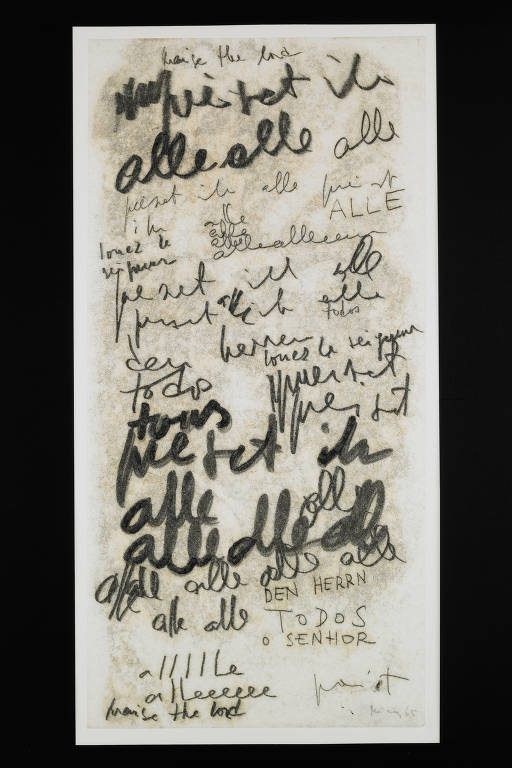 praise the lord
preiset ihn
alle alle alle
preiset ihn alle preiset
ALLE
ihn alle
louez le alle
seigneur alle alleeeee
preiset ihn alle
preiset ihn alle
todos
den herren louez le seigneur
todos preiset
tous preiset
preiset ihn
alle alle
alle alle alle
alle alle alle alle
DEN HERRN
alle alle TODOS
O SENHOR
allllle
alleeeeee preist
praise the lord